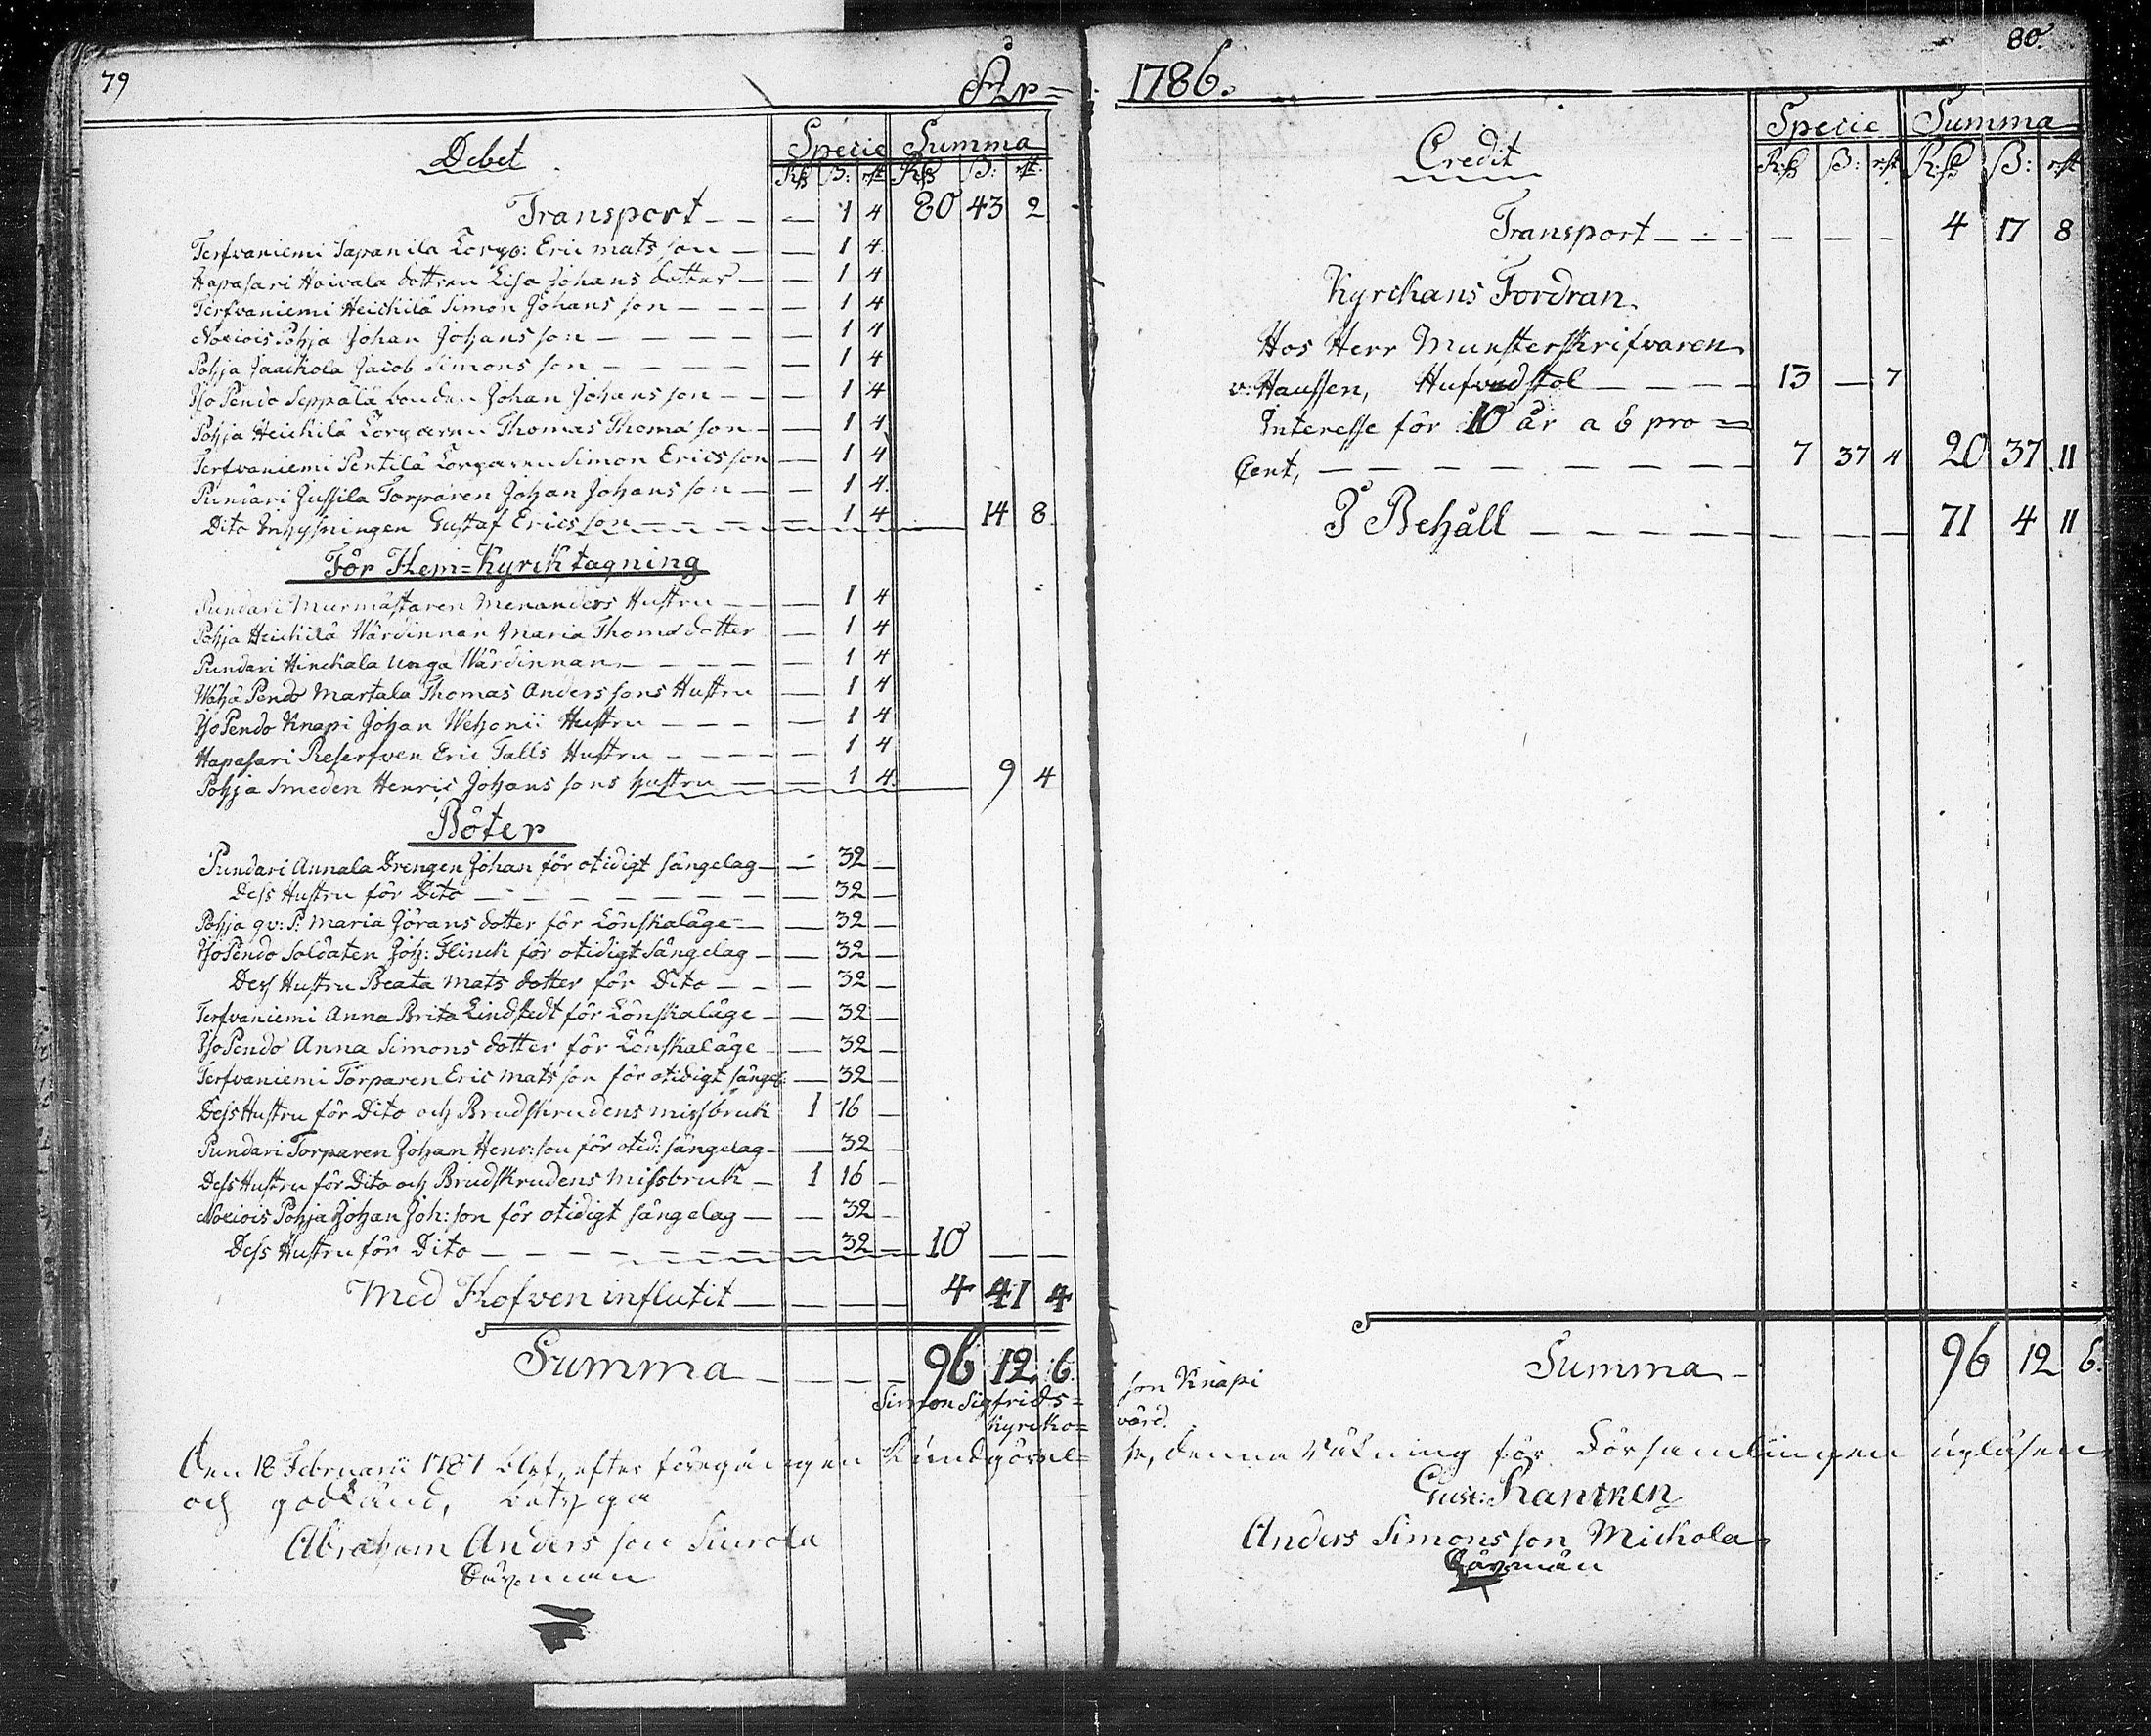 79
År = 1786.
80.
Debet
Specie Summa
Rß ß: rst Rß ß: rst
Transport — — — 1 4 80 43 2
Terfvaniemi Tapanila Torp: Eric Mats son — — 1 4
Hapasari Hoivala dottren Lisa Johans dotter — — 1 4
Terfvaniemi Heickilä Simon Johans son — — — — 1 4
Nociois Pohja Johan Johans son — — — — — 1 4
Pohja Jaackola Jacob Simons son — — — — — 1 4
Iso Pendo Seppälä bonden Johan Johans son — — — 1 4
Pohja Heickilä Torparen Thomas Thomæ son — — 1 4
Terfvaniemi Pentilä Torparen Simon Erics son — 1 4
Pundari Jussila Torparen Johan Johans son — — 1 4
Dito Inhysningen Gustaf Erics son — — — — 1 4 — 14 8
För Hem=Kyrcktagning
Pundari Murmästaren Menanders Hustru — — — 1 4
Pohja Heickilä Wärdinnan Maria Thomæ dotter — 1 4
Pundari Hinckala unga Wärdinnan — — — — — 1 4
Wähä Pendo Martala Thomas Anders sons Hustru — 1 4
Iso Pendo Knapi Johan Wehonii Hustru — — — — 1 4
Hapasari Reserfven Eric Talls Hustru — — — — — 1 4
Pohja Smeden Henric Johans sons hustru — — 1 4 — 9 4
Böter
Pundari Annala Drengen Johan för otidigt sängelag — — 32 —
Dess Hustru för Dito — — — — — — — — 32 —
Pohja qv: P: Maria Jörans dotter för Lönskaläge — — 32 —
Iso Pendo Soldaten Joh: Flinck för otidigt Sängelag — — 32 —
Dess Hustru Beata Mats dotter för Dito — — — 32 —
Terfvaniemi Anna Brita Lindstedt för Lönskaläge — — 32 —
Iso Pendo Anna Simons dotter för Lönskaläge — — 32 —
Terfvaniemi Torparen Eric Mats son för otidigt sängel: — 32 —
Dess Hustru för Dito och Brudskrudens missbruk 1 16 —
Pundari Torparen Johan Henr: son för otid: sängelag — — 32 —
Dess Hustru för Dito och Brudskrudens missbruk — 1 16 —
Nociois Pohja Johan Joh: son för otidigt sängelag — — 32 —
Dess Hustru för Dito — — — — — — — — 32 — 10 — —
Med Hofven influtit — — — — 4 41 4
Summa — — — — 96 12 6.
Credit
Specie Summa
R:ß ß: rst R:ß ß: rst
Transport — — — — — — 4 17 8
Kyrckans Fordran
Hos Herr Munsterskrifvaren
v: Haussen, Hufvudstol — — — — 13 — 7
Interesse för 10 år a 6 pro =
Cent, — — — — — — — — 7 37 4 20 37 11
P Behåll — — — — — — — 71 4 11
Summa — 96 12 6.
Simon Sigfrids= son Knapi
Kyrcko= värd.
Den 18 Februarii 1787 blef, efter föregången Kundgörel= se, denna Räkning för Församlingen upläsen
och godkänd, betyga
Gust: Rancken
Abraham Anders son Siurola
Anders Simons son Mickola